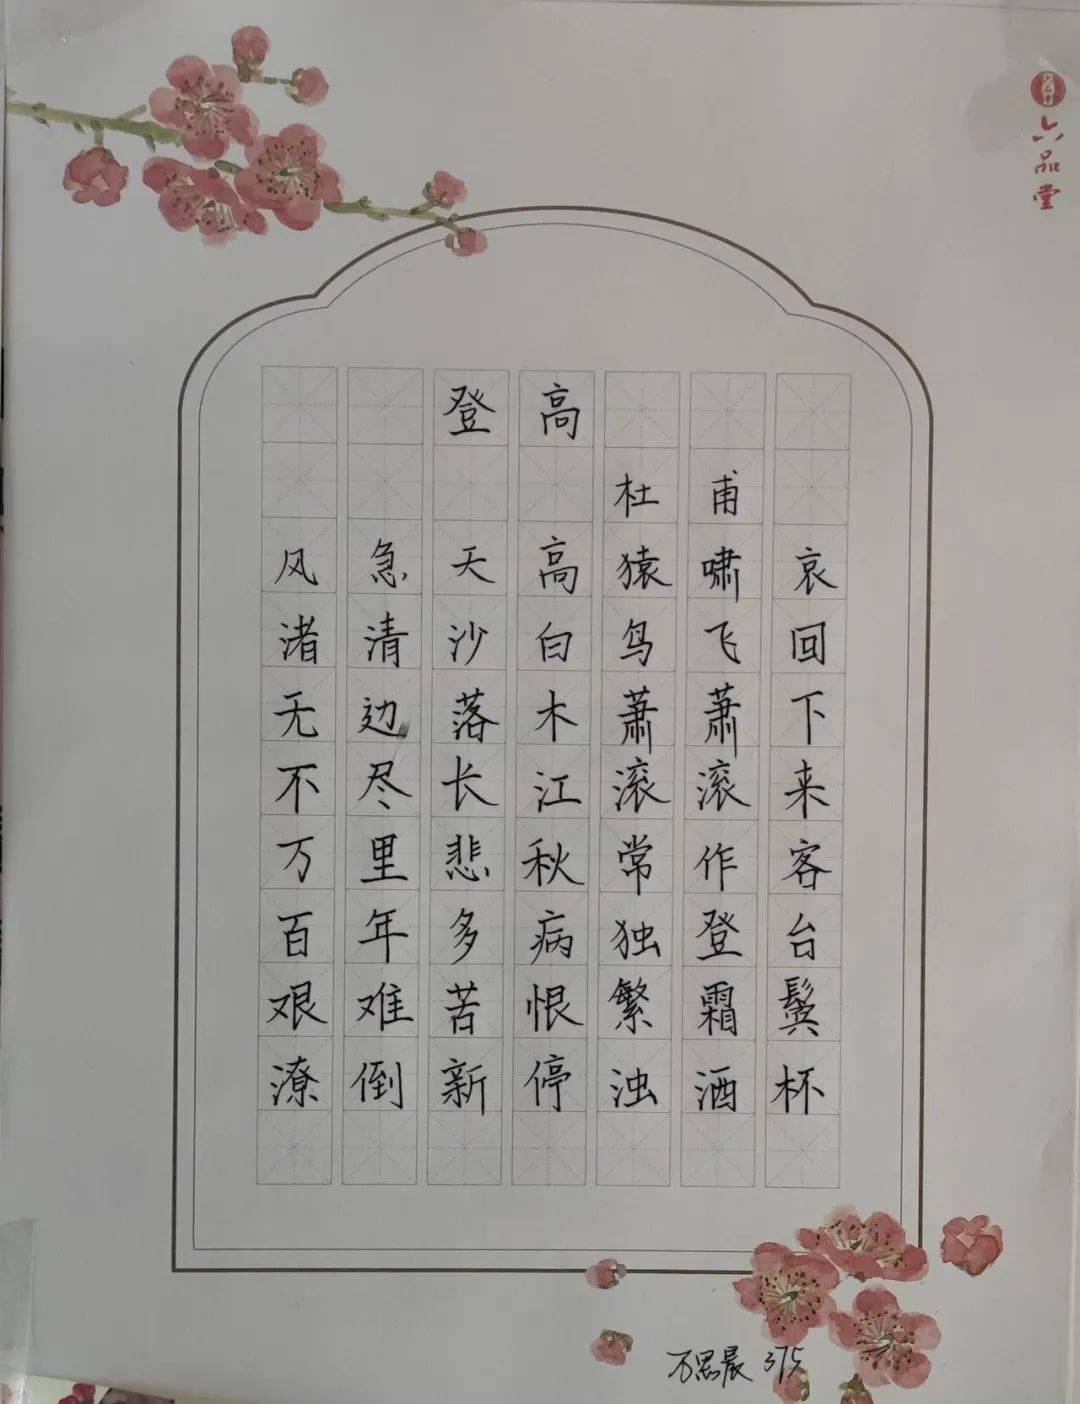 六品堂
登高
杜甫
风急天高猿啸哀
渚清沙白鸟飞回
无边落木萧萧下
不尽长江滚滚来
万里悲秋常作客
百年多病独登台
艰难苦恨繁霜鬓
潦倒新停浊酒杯
万思晨 375